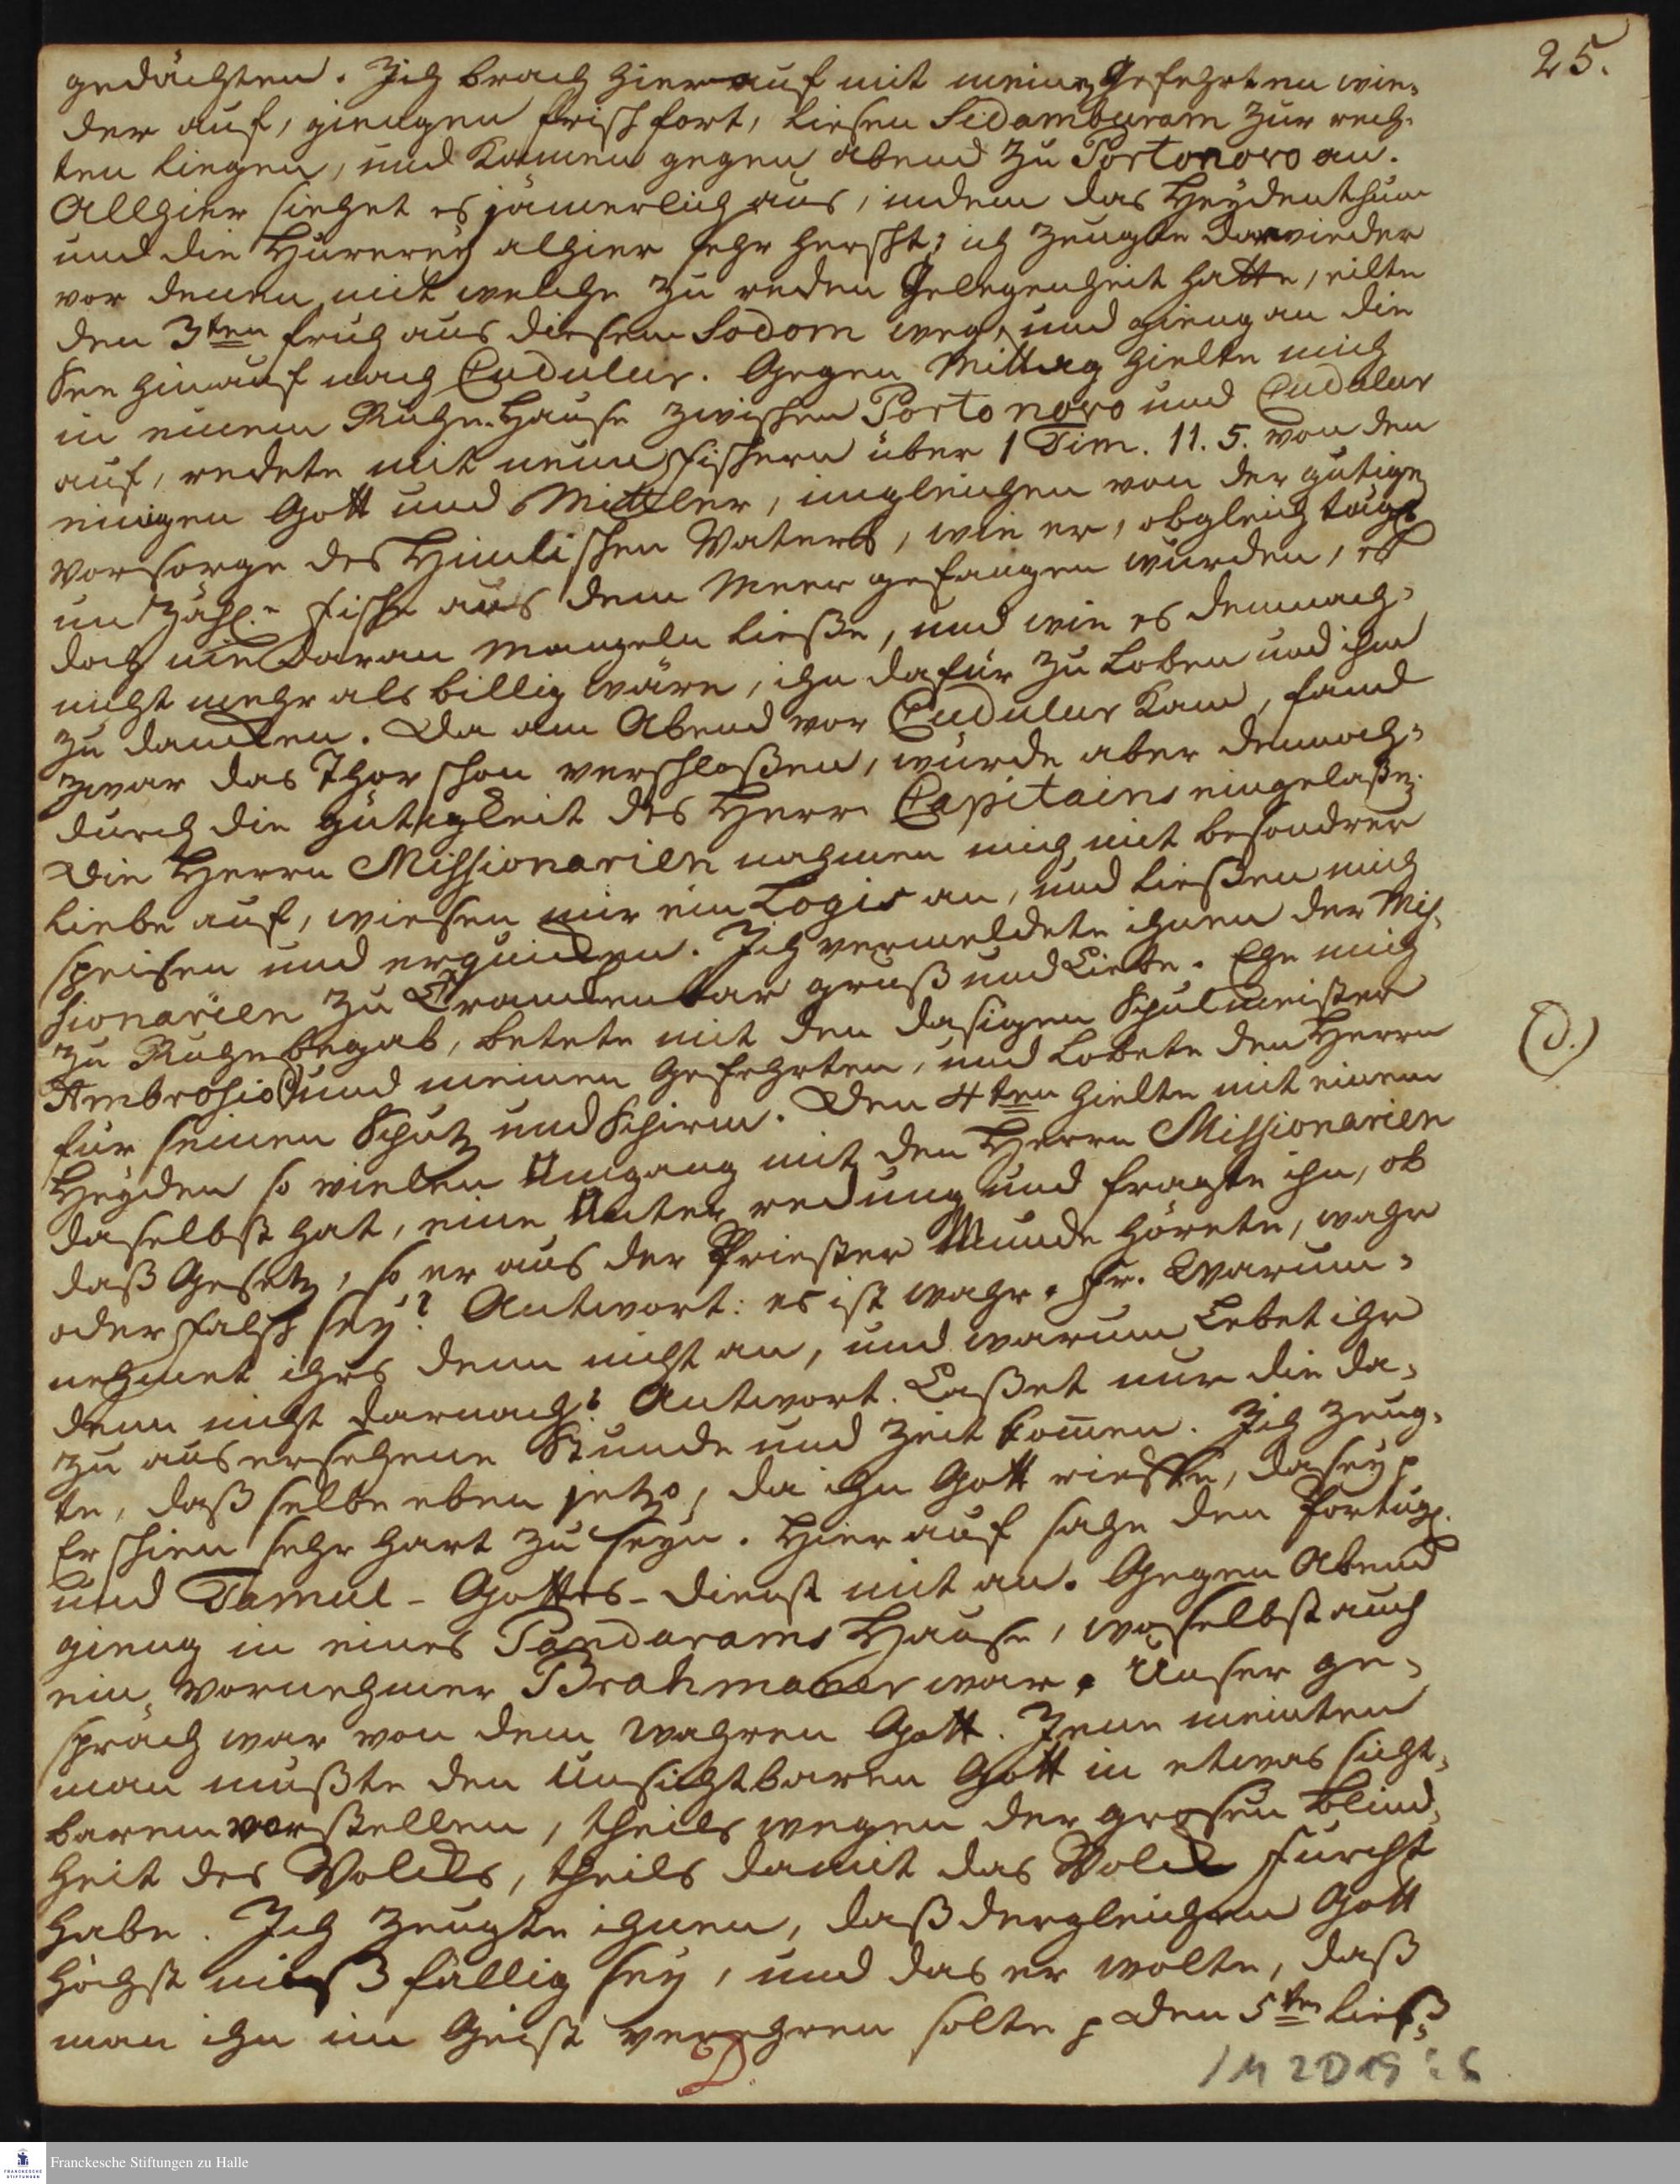 25.
gedächten. Ich brach hierauf mit meinen Gefehrten wie-
der auf, giengen frisch fort, liesen Sidamburam zur rech-
ten liegen, und kamen gegen abend zu Portonovo an.
Allhier siehet es jämerlich aus, indem das Heydenthum
und die Hurerey alhier sehr herscht; ich zeugte darwieder
vor denen, mit welche zu reden Gelegenheit hatte, eilte
den 3ten fruh aus diesem Sodom weg, und gieng an die
See hinauf nach Cudulur. Gegen Mittag hielte mich
in einem Ruhe-Hause zwischen Portonovo und Cudulur
auf, redete mit neun Fischern über 1 Tim. 11. 5. von den
einigen Gott und Mittler, imgleichen von der gütigen
Vorsorge des Himlischen Vaters, wie er, obgleich tägl.
unzähl. Fische aus dem Meer gefangen würden, es
doch nie daran mangeln ließe, und wie es demnach
nicht mehr als billig wäre, ihn dafür zu loben und ihm
zu dancken. Da am Abend vor Cudulur kam, fand
zwar das Thor schon verschloßen, wurde aber dennoch
durch die gütigkeit des Herrn Capitains eingelaßen.
Die Herrn Missionarien nahmen mich mit besondrer
Liebe auf, wiesen mir ein Logis an, und ließen mich
speisen und erquicken. Ich vermeldete ihnen der Mis-
sionarien zu Tranckenbar gruß und Liebe. Ehe mich
zu Ruhe begab, betete mit den dasigen Schulmeister
Ambrosio und meinen Gefehrten, und lobete den Herrn
(d.)
für seinen Schutz und Schirm. Den 4ten hielte mit einem
Heyden so vielen Umgang mit den Herrn Missionarien
daselbst hat, eine Unterredung und fragte ihn, ob
daß Gesetz, so er aus der Priester Munde hörete, wahr
oder falsch sey? Antwort: es ist wahr. Fr. Warum
nehmet ihrs denn nicht an, und warum Lebet ihr
denn nicht darnach? Antwort. Laßet nur die da-
zu ausersehene Stunde und Zeit komen. Ich zeug-
te, daß selbe eben jetzo, da ihn Gott rieffe, da sey p
Er schien sehr hart zu seyn. Hierauf sahe den Portug.
und Tamul-Gottes-dienst mit an. Gegen Abend
gieng in eines Pandarams Hause, woselbst auch
ein vornehmer Brahmaner war. Unser ge-
spräch war von dem wahren Gott. Jene meinten
man mußte den Unsichtbaren Gott in etwas sicht-
baren vorstellen, theils wegen der grosen Blind-
heit des Volcks, theils damit das Volck Furcht
habe. Ich zeugte ihnen, daß dergleichen Gott
höchst mißfällig sey, und das er wolte, daß
man ihn im Geist verehren solte p Den 5ten ließ
D.
1 M 2 D 19 : 6
Franckesche Stiftungen zu Halle